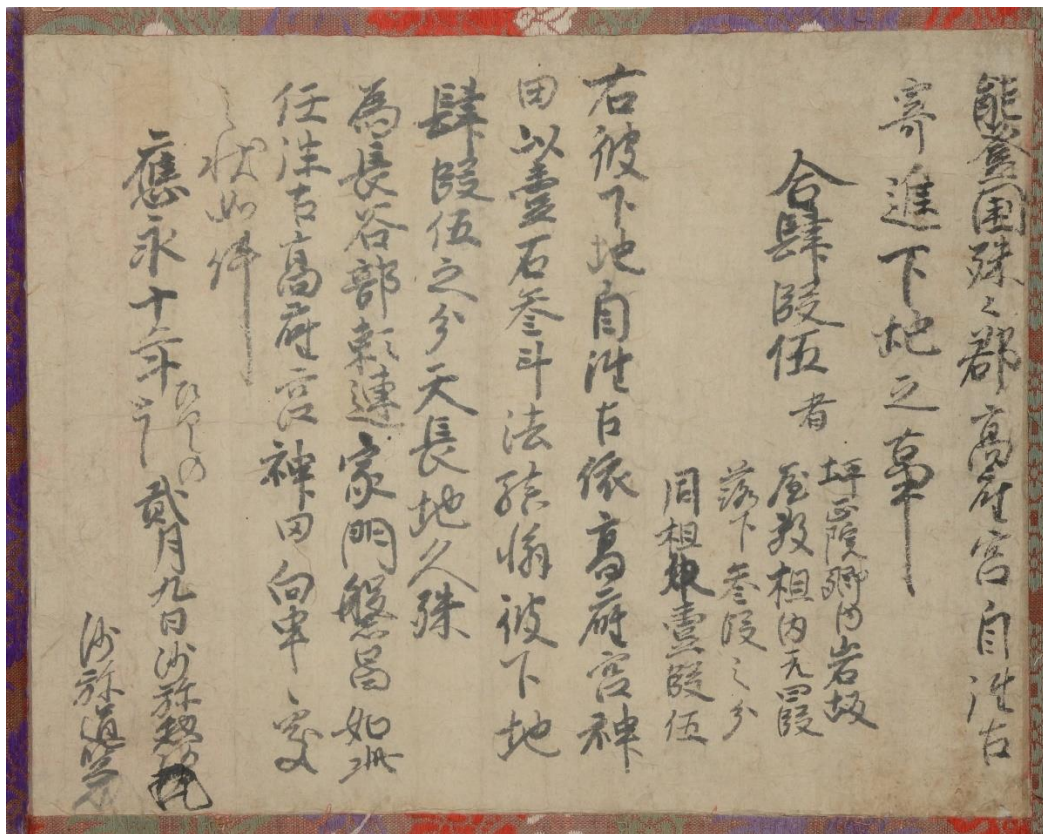 能登国珠々郡高座宮自往古
寄進下地之事
合肆段伍者
坪正院郷内岩坂
屋敷相内九四段
落下参段之分
同相 壹段伍
右彼下地自往古依高座宮神
田以壹石参斗法 彼下地
肆段伍之分天長地久殊
為長谷部頼連家門繁昌如此
任往古高座宮神田向申之処
之状如件
應永十二年 ひのとの 貳月九日沙弥
沙弥道